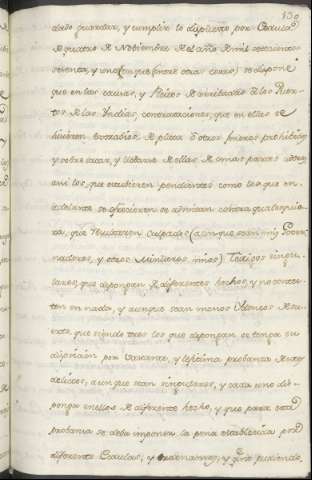 130
dado guardar, y cumplir lo dispuesto por Cedula
de quatro de Noviembre del año de mil setecientos
setenta, y una (en que entre otras cosas) se dispone
que en las causas, y Pleitos de arribadas de los Puer-
tos de las Indias, contrataciones, que en ellas se
hicieren de plata ò otros generos prohibidos
y sobre sacar, y llevar de ellas de unas partes à otras
asi los, que estubieren pendientes como los que en
adelante se ofrecieren se admitan contra qualesquie-
ra, que resultaren culpados (aunque sean mis Gover-
nadores, y otros Ministros mios) Testigos singu-
lares, que depongan de diferentes hechos, y no contes-
ten en nada, y aunque sean menos Ydoneos de su-
erte que siendo tres los que depongan se tenga su
disposicion por bastante, y lexitima probanza de los
delitos, aunque sean singulares, y cada uno de-
ponga en ellos de diferente hecho, y que para esta
probanza se deba imponer la pena establecida por
diferentes Cedulas, y ordenanzas, y que pudiendo